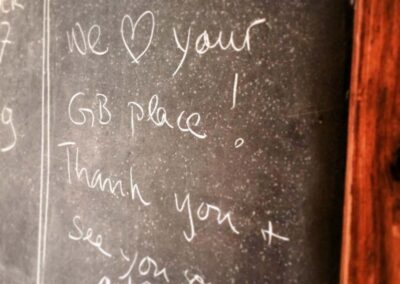 We ♡ your
GB place!
Thank you +
See you